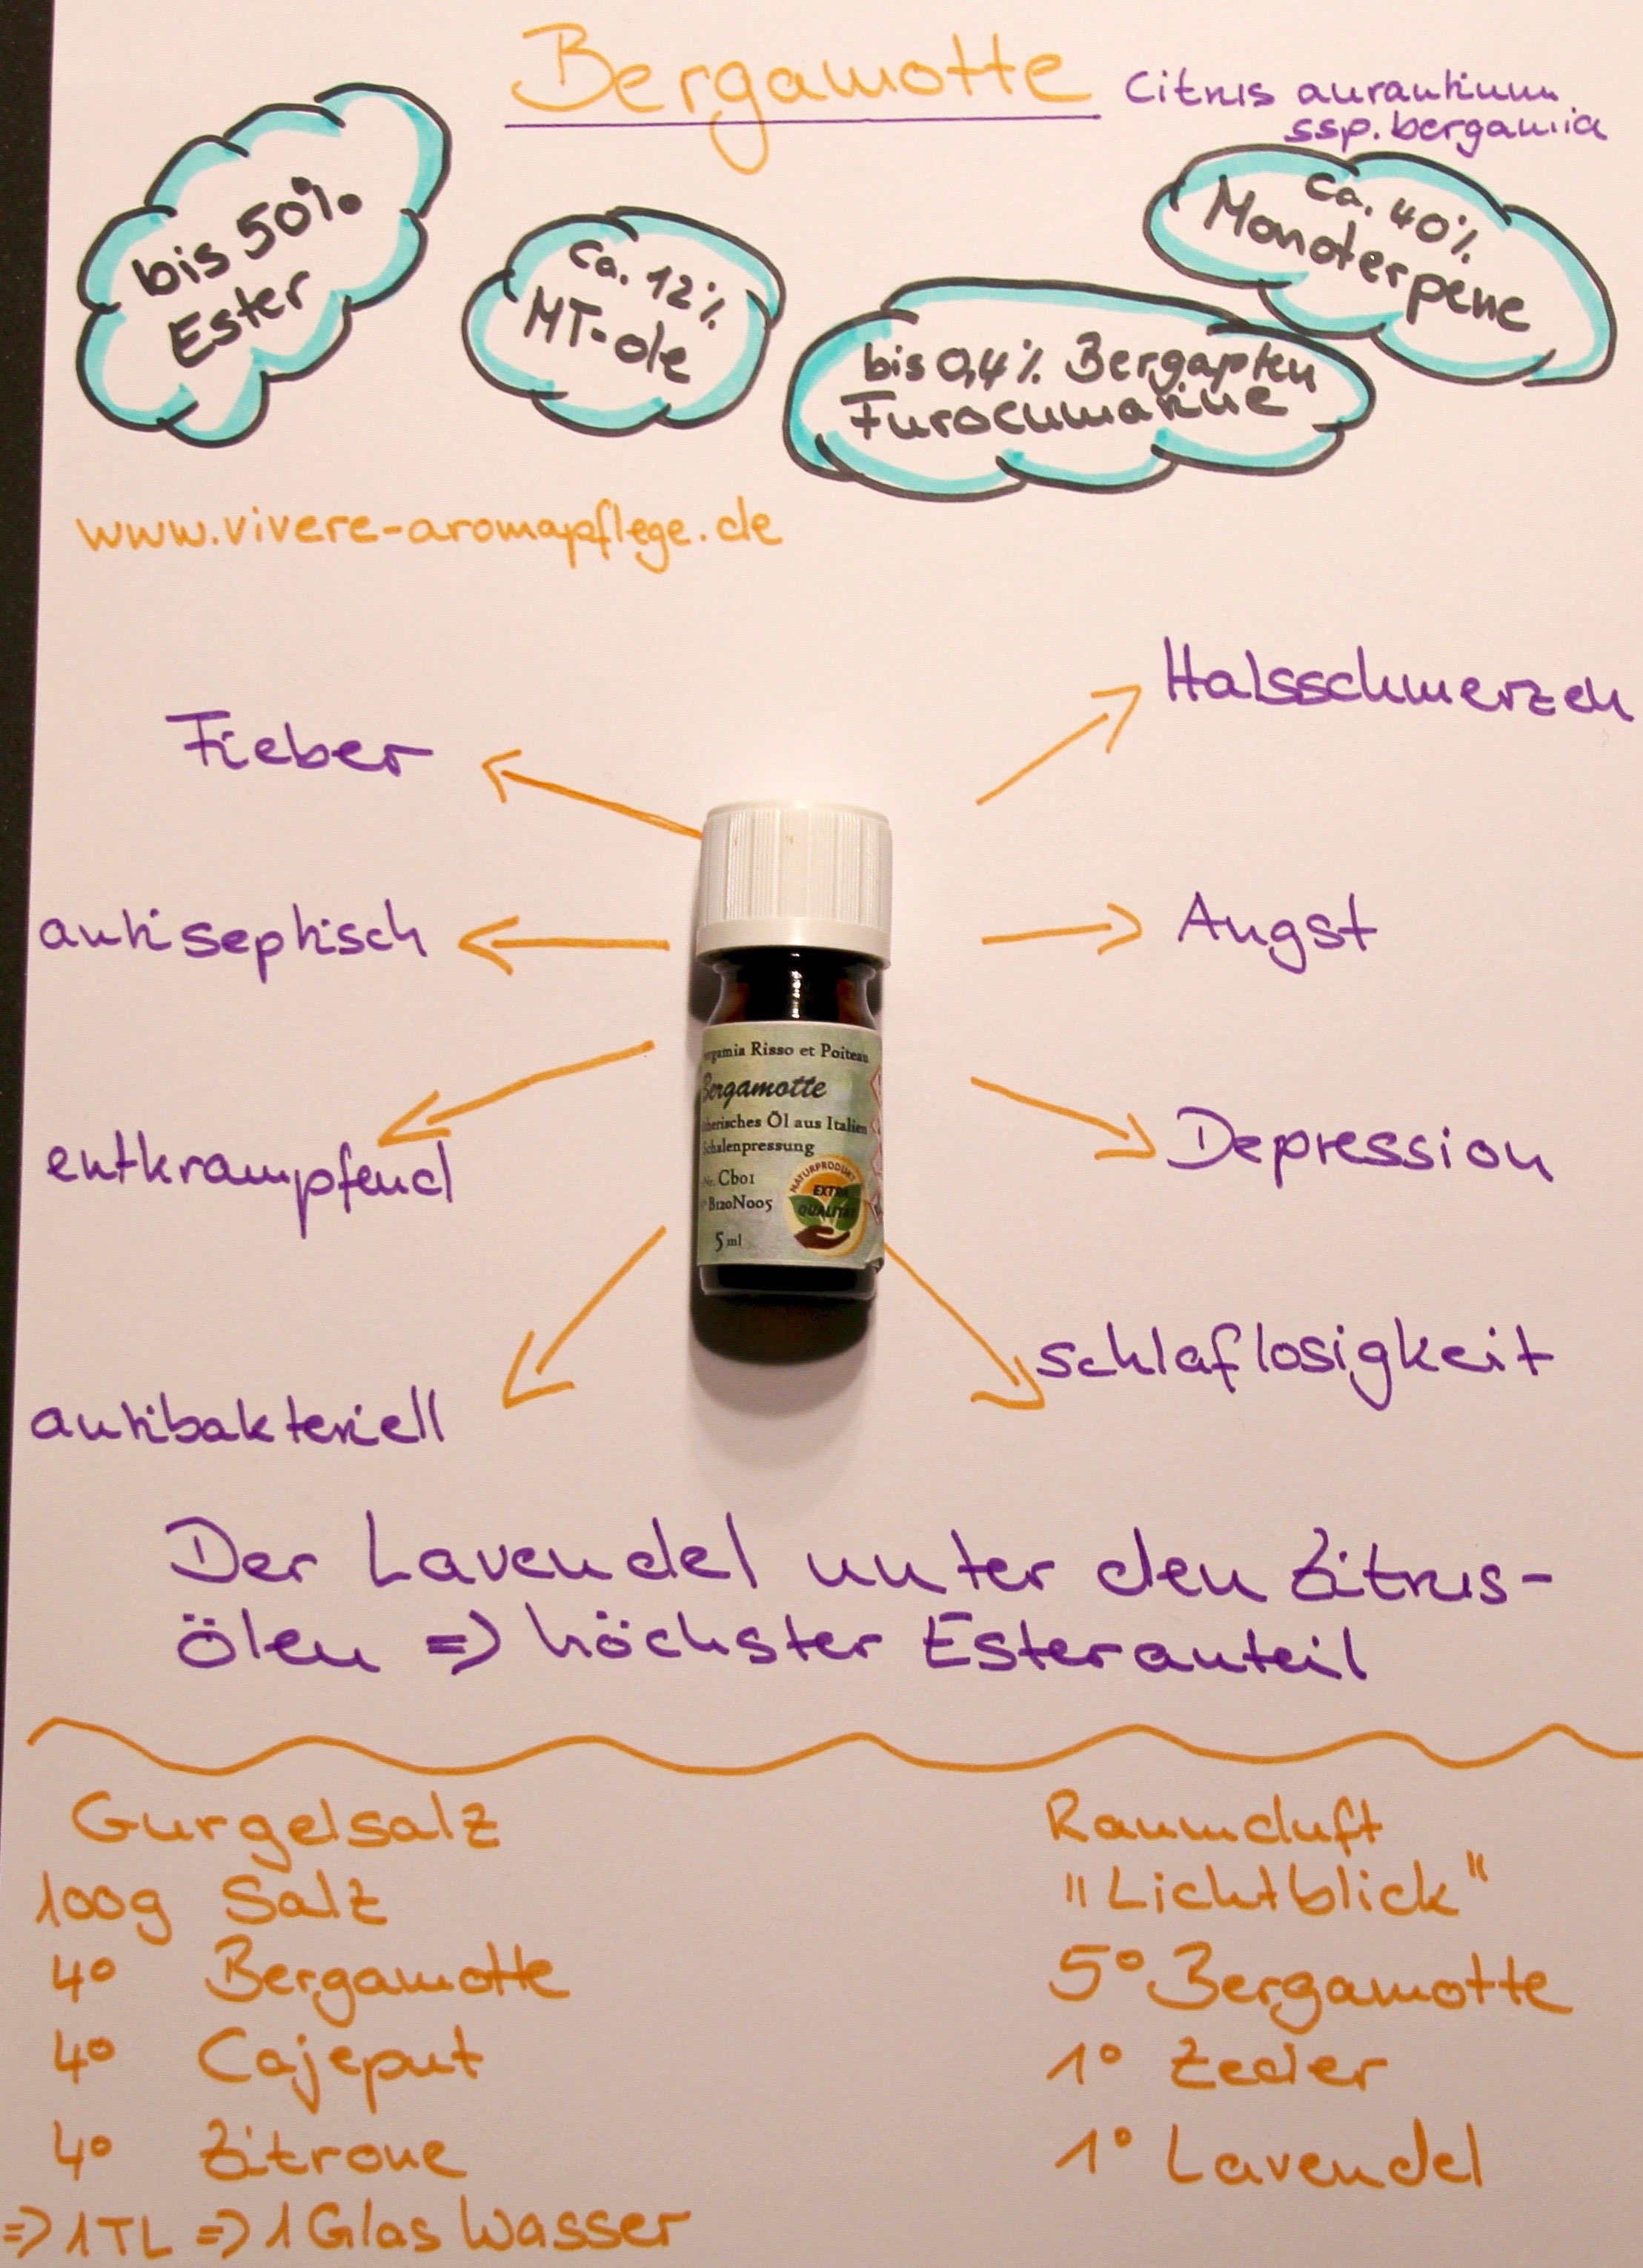 Bergamotte
Citrus aurantium
ssp. bergamia
bis 50%
Ester
Ca. 12%
MT-ole
bis 0,4% Bergapten
Furocumarine
Ca. 40%
Monoterpene
www.vivere-aromapflege.de
Fieber
Halsschmerzen
antiseptisch
Angst
entkrampfend
Depression
antibakteriell
schlaflosigkeit
ergamia Risso et Poiteau
Bergamotte
therisches Öl aus Italien
Schalenpressung
Nr. Cb01
B120N005
5 ml
NATURPRODUKT
EXTRA
QUALITÄT
Der Lavendel unter den Zitrus-
ölen => höchster Esteranteil
Gurgelsalz
100g Salz
4° Bergamotte
4° Cajeput
4° Zitrone
=> 1TL => 1 Glas Wasser
Raumduft
"Lichtblick"
5° Bergamotte
1° Zeder
1° Lavendel